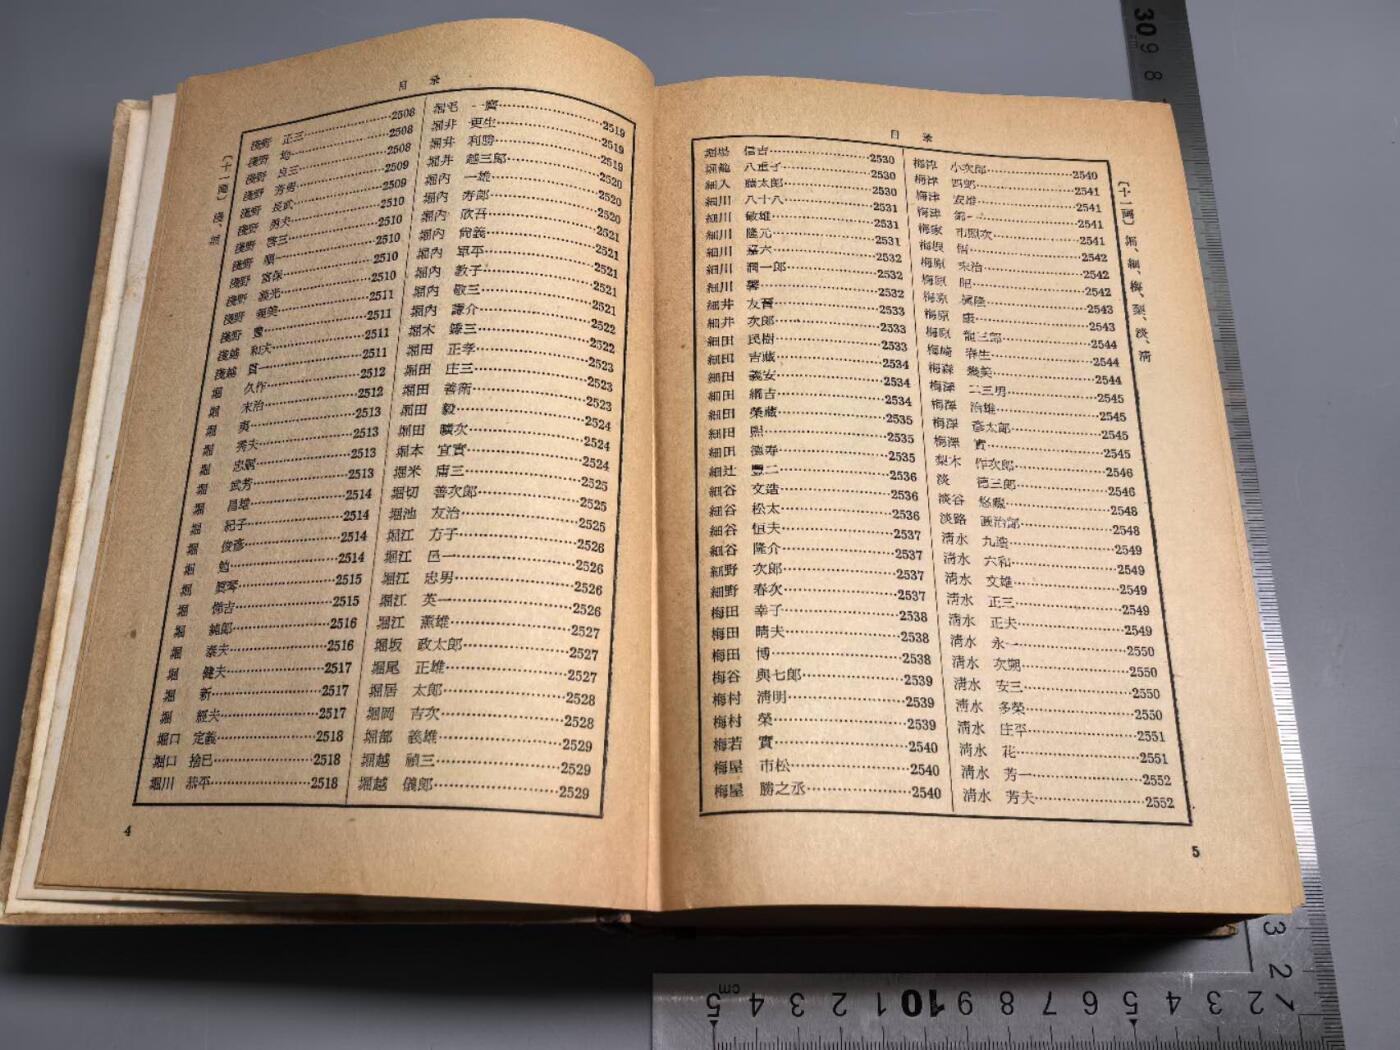 目 录
〔十一画〕 淺、堀
淺野 正三 2508
淺野 均 2508
淺野 良三 2508
淺野 2509
淺野 長武 2509
淺野 勇夫 2510
淺野 啓三 2510
淺野 順一 2510
淺野 2510
淺野 義光 2511
淺野 2511
淺野 2511
淺越 和夫 2511
淺越 貫一 2512
堀 久作 2512
堀 末治 2513
堀 夷 2513
堀 秀夫 2513
堀 忠嗣 2513
堀 武芳 2514
堀 昌雄 2514
堀 紀子 2514
堀 俊彥 2514
堀 勉 2515
堀 賀琴 2515
堀 悌吉 2516
堀 純郎 2516
堀 泰夫 2517
堀 健夫 2517
堀 新 2517
堀 經夫 2518
堀口 定義 2518
堀口 捨巳 2518
堀川 恭平 2518
堀毛 一麿 2519
堀井 更生 2519
堀井 利勝 2519
堀井 越三郎 2520
堀内 一雄 2520
堀内 寿郎 2520
堀内 欣吾 2521
堀内 尙義 2521
堀内 軍平 2521
堀内 敦子 2521
堀内 敬三 2521
堀内 謙介 2522
堀木 鎌三 2522
堀田 正孝 2523
堀田 庄三 2523
堀田 善衛 2523
堀田 毅 2524
堀田 曠次 2524
堀本 宜實 2524
堀米 庸三 2525
堀切 善次郎 2525
堀池 友治 2525
堀江 方子 2526
堀江 邑一 2526
堀江 忠男 2526
堀江 英一 2526
堀江 薰雄 2527
堀坂 政太郎 2527
堀尾 正雄 2527
堀居 太郎 2528
堀岡 吉次 2528
堀部 義雄 2529
堀越 禎三 2529
堀越 儀郎 2529
4
目 录
堀場 信吉 2530
堀籠 八重子 2530
細入 藤太郎 2530
細川 八十八 2531
細川 敏雄 2531
細川 隆元 2531
細川 嘉六 2532
細川 潤一郎 2532
細川 馨 2532
細井 友晋 2533
細井 次郎 2533
細田 民樹 2533
細田 吉藏 2534
細田 義安 2534
細田 綱吉 2534
細田 榮藏 2535
細田 熙 2535
細田 德寿 2535
細辻 豐二 2536
細谷 文造 2536
細谷 松太 2536
細谷 恒夫 2537
細谷 隆介 2537
細野 次郎 2537
細野 春次 2537
梅田 幸子 2538
梅田 晴夫 2538
梅田 博 2538
梅谷 與七郎 2539
梅村 清明 2539
梅村 榮 2539
梅若 實 2540
梅屋 市松 2540
梅屋 勝之丞 2540
梅津 小次郎 2540
梅津 四郎 2541
梅津 安雄 2541
梅津 錦一 2541
梅家 市照次 2541
梅根 悟 2542
梅原 末治 2542
梅原 肥 2542
梅原 眞隆 2543
梅原 康 2543
梅原 龍三郎 2544
梅崎 春生 2544
梅森 幾美 2544
梅澤 二三男 2545
梅澤 治雄 2545
梅澤 彥太郎 2545
梅澤 實 2545
梨木 作次郎 2546
淡 德三郎 2546
淡谷 悠藏 2548
淡路 政治郎 2548
淸水 九逸 2549
淸水 六和 2549
淸水 文雄 2549
淸水 正三 2549
淸水 正夫 2549
淸水 永一 2550
淸水 次郷 2550
淸水 安三 2550
淸水 多榮 2550
淸水 庄平 2551
淸水 花 2551
淸水 芳一 2552
淸水 芳夫 2552
〔十一画〕 堀、細、梅、梨、淡、淸
5